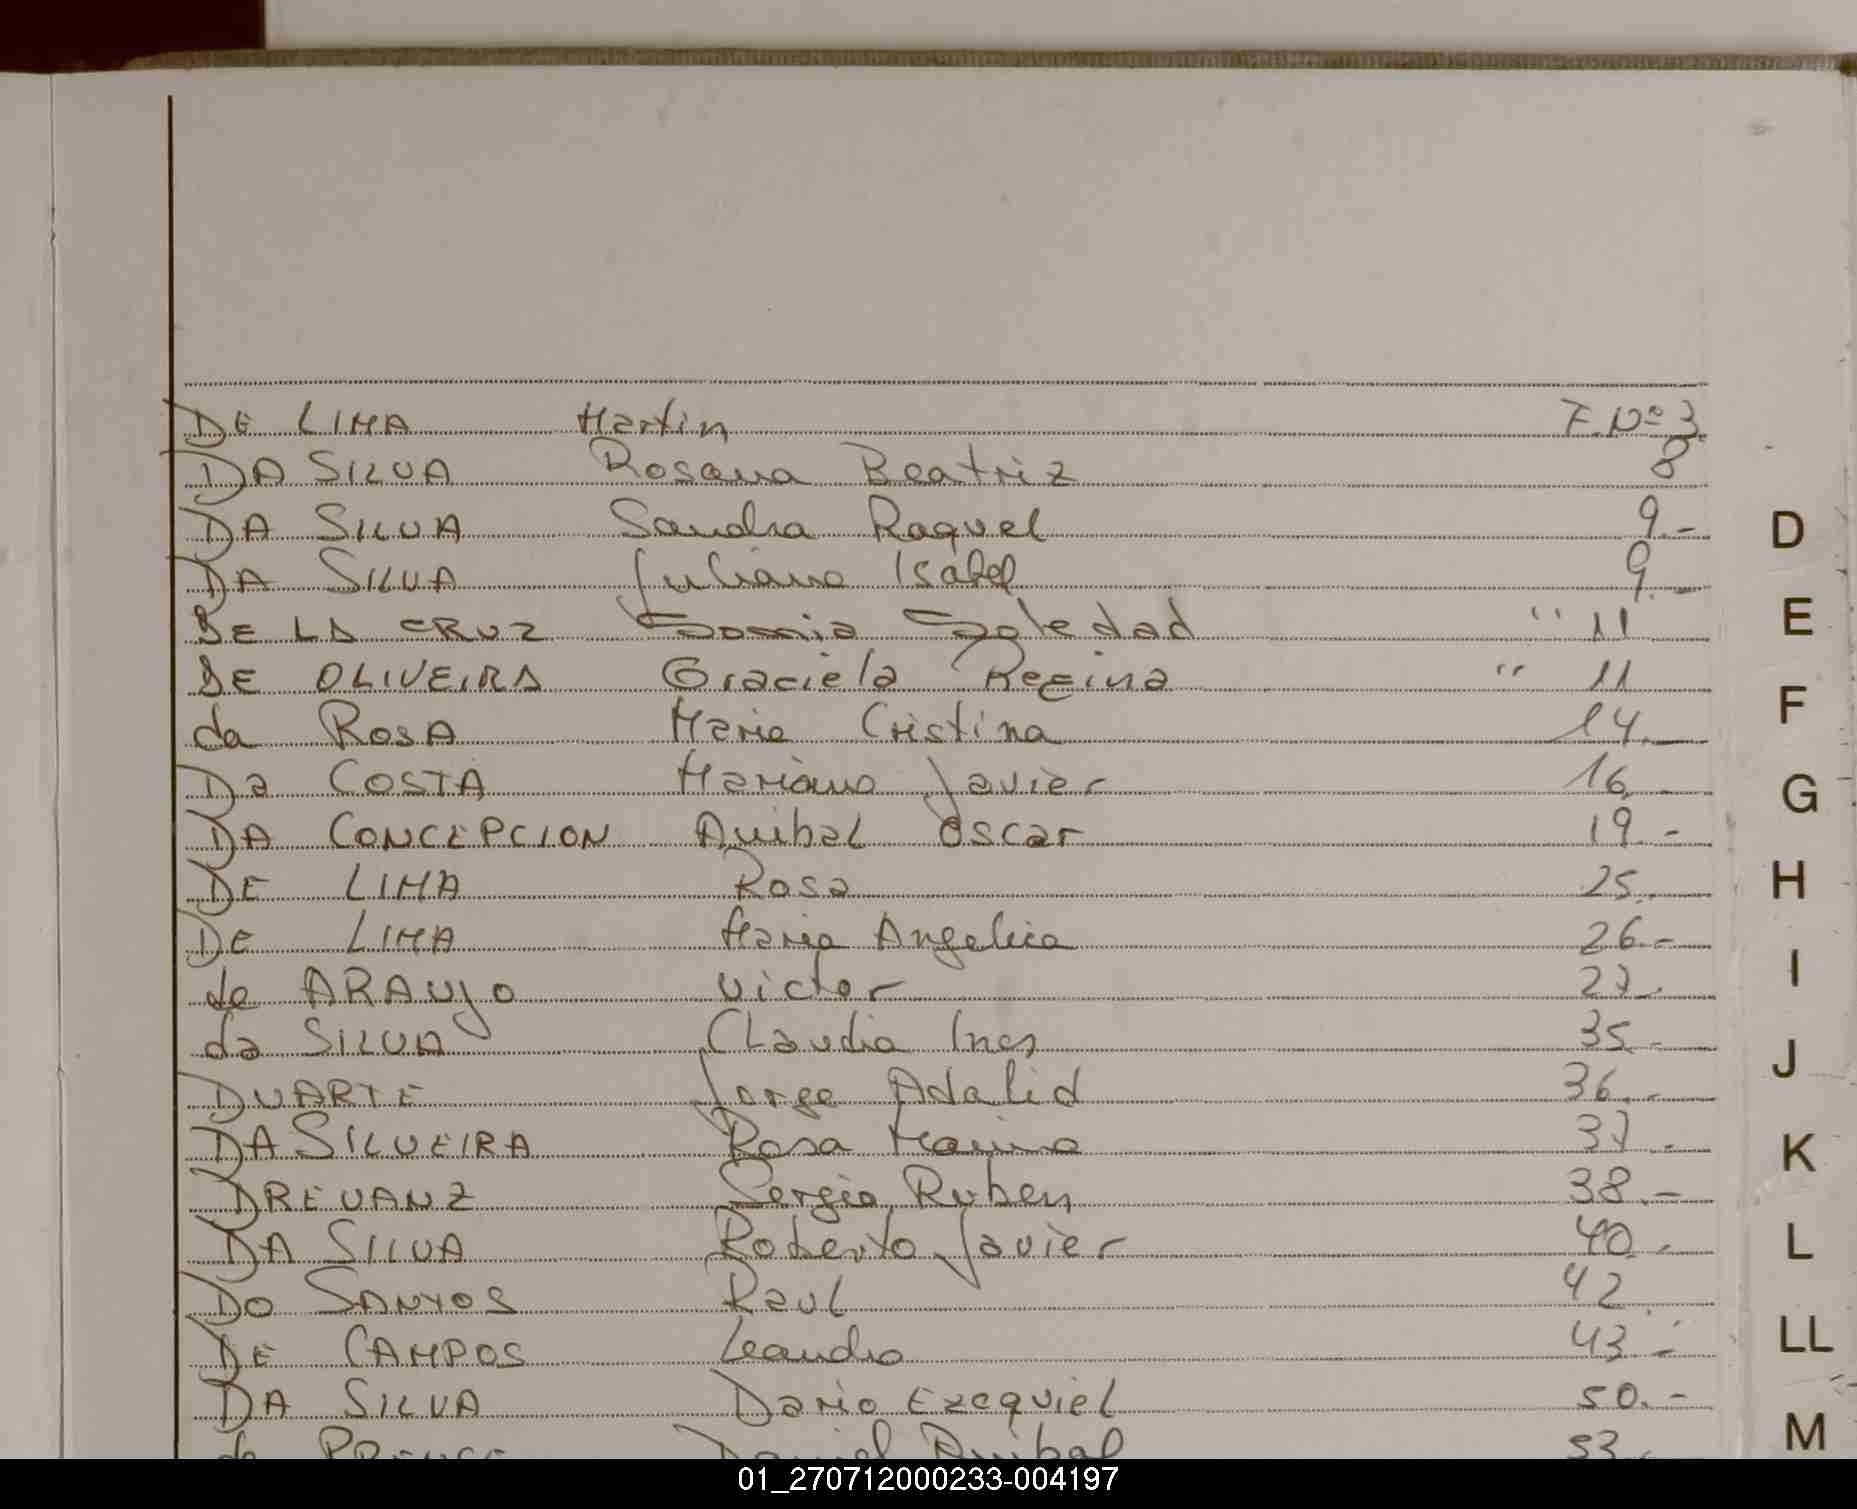 DE LIMA Martin F.Nº 3
DA SILVA Rosana Beatriz 8
DA SILVA Sandra Raquel 9.-
DA SILVA Juliana Isabel 9.-
DE LA CRUZ Sonnia Soledad " 11
DE OLIVEIRA Graciela Regina " 11
da ROSA Maria Cristina 14.-
Da COSTA Mariano Javier 16.-
DA CONCEPCION Anibal Oscar 19.-
DE LIMA Rosa 25.-
DE LIMA Maria Angelica 26.-
de ARAUJO Victor 27.-
da SILVA Claudia Ines 35.-
DUARTE Jorge Adalid 36.-
DA SILVEIRA Rosa Marina 37.-
DREVANZ Sergio Ruben 38.-
DA SILVA Roberto Javier 40.-
DO SANTOS Raul 42
DE CAMPOS Leandro 43.-
DA SILVA Dario Ezequiel 50.-
de Daniel Anibal 53.-
D
E
F
G
H
I
J
K
L
LL
M
01_270712000233-004197